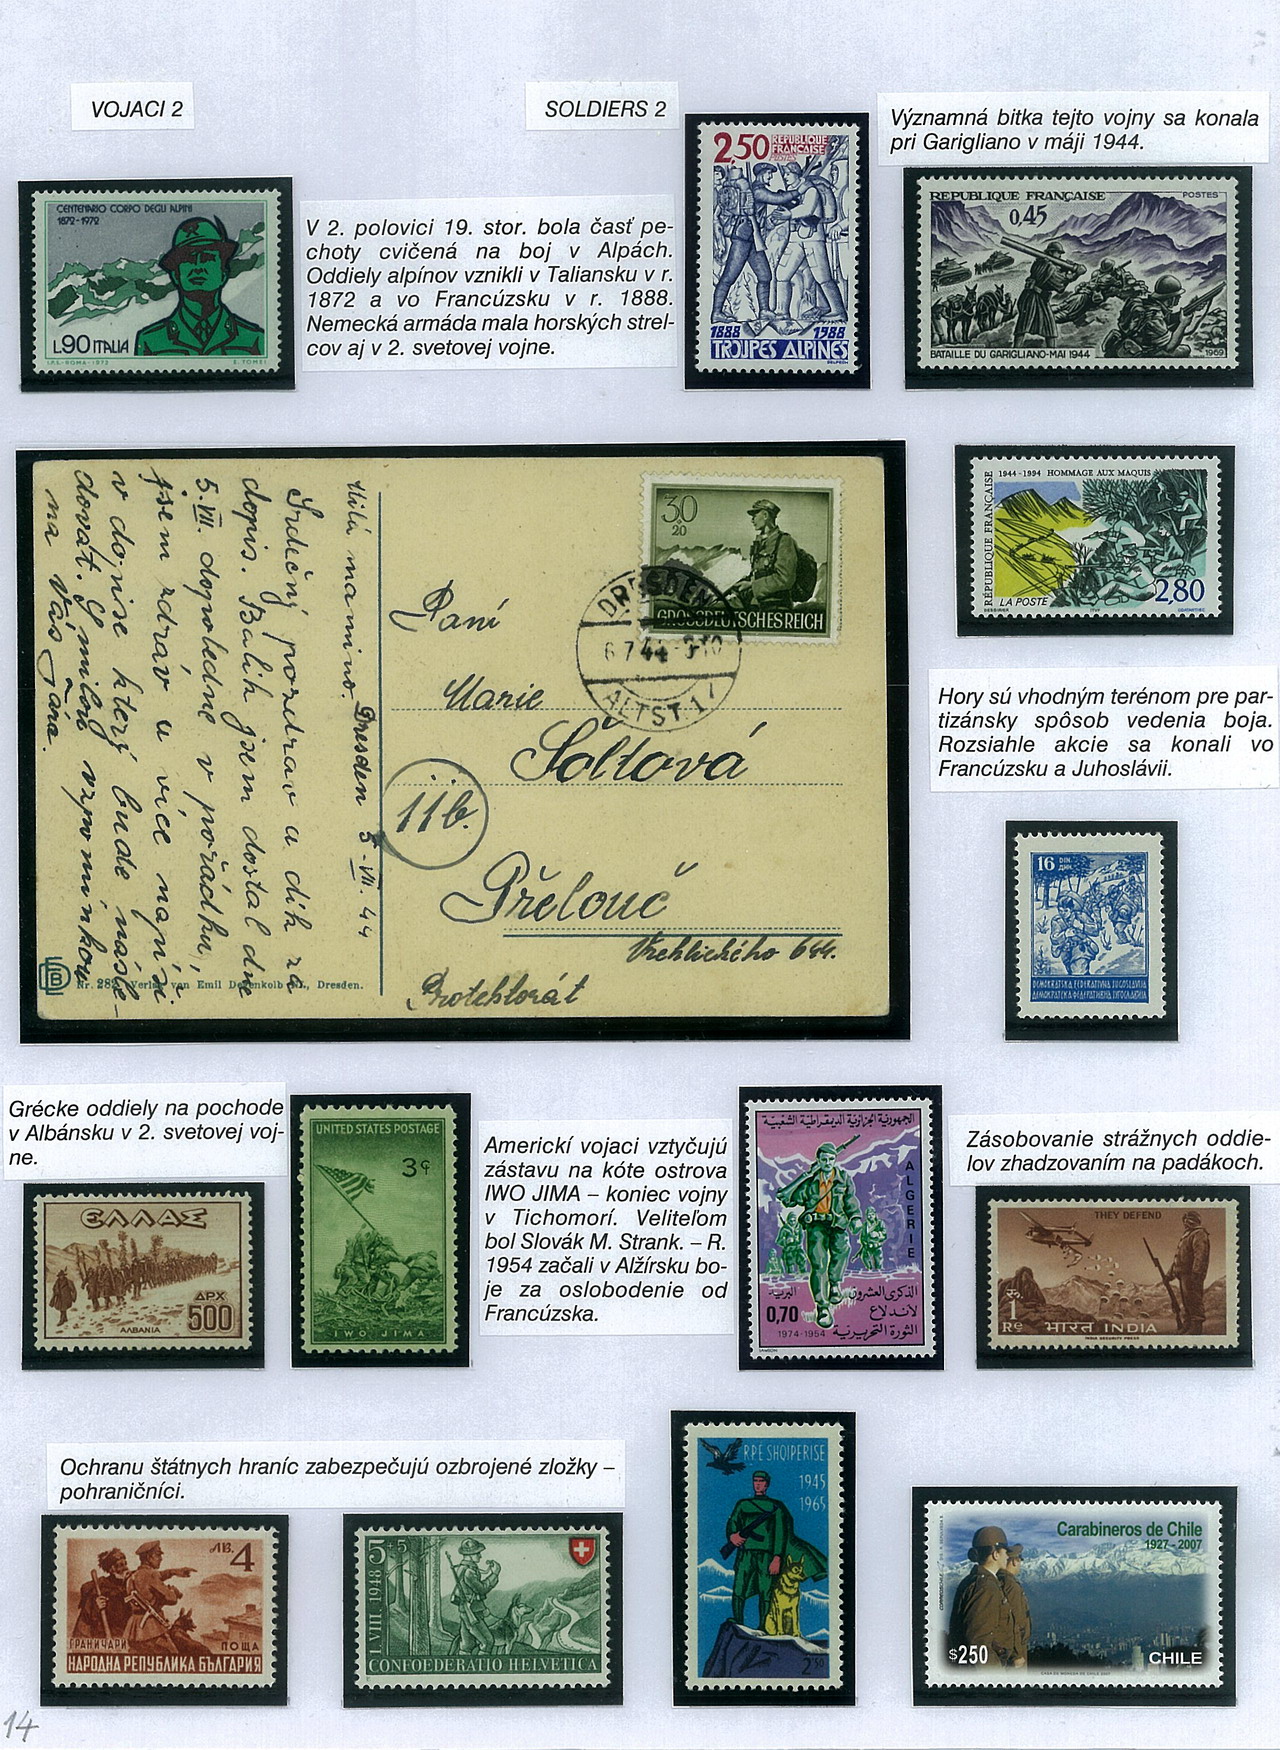 VOJACI 2
SOLDIERS 2
Významná bitka tejto vojny sa konala
pri Garigliano v máji 1944.
CENTENARIO CORPO DEGLI ALPINI
1872-1972
L.90 ITALIA
I.P.S.-ROMA-1972
E. TOMEI
V 2. polovici 19. stor. bola časť pe-
choty cvičená na boj v Alpách.
Oddiely alpínov vznikli v Taliansku v r.
1872 a vo Francúzsku v r. 1888.
Nemecká armáda mala horských strel-
cov aj v 2. svetovej vojne.
2,50 REPUBLIQUE
FRANÇAISE
POSTES
1888 1988
TROUPES ALPINES
DELPECH
REPUBLIQUE FRANÇAISE POSTES
0,45
BATAILLE DU GARIGLIANO-MAI 1944
1969
Milá maminko. Dresden 5-VII. 44
Srdečný pozdrav a dík za
dopis. Balík jsem dostal dne
5.VII. dopoledne v pořádku,
jsem zdráv a více napíši
v dopise který bude násle-
dovat. S milou vzpomínkou
na Vás Jára.
30
20
GROSSDEUTSCHES REICH
DRESDEN
6.7.44-9-10
ALTST. 1
Paní
Marie
Šoltová
11b.
Přelouč
Vrchlického 644.
Protektorát
Nr. 282 Verlag von Emil Degenkolb Dresden.
1944-1994 HOMMAGE AUX MAQUIS
RÉPUBLIQUE FRANÇAISE
LA POSTE
2,80
Hory sú vhodným terénom pre par-
tizánsky spôsob vedenia boja.
Rozsiahle akcie sa konali vo
Francúzsku a Juhoslávii.
16 DIN
ДИН
DEMOKRATSKA FEDERATIVNA JUGOSLAVIJA
ДЕМОКРАТСКА ФЕДЕРАТИВНА ЈУГОСЛАВИЈА
Grécke oddiely na pochode
v Albánsku v 2. svetovej voj-
ne.
ΕΛΛΑΣ
ΔΡΧ
500
ΑΛΒΑΝΙΑ
UNITED STATES POSTAGE
3¢
IWO JIMA
Americkí vojaci vztyčujú
zástavu na kóte ostrova
IWO JIMA – koniec vojny
v Tichomorí. Veliteľom
bol Slovák M. Strank. – R.
1954 začali v Alžírsku bo-
je za oslobodenie od
Francúzska.
الجمهورية الجزائرية الديمقراطية الشعبية
ALGERIE
الذكرى العشرون
لاندلاع
الثورة التحريرية
البريد
0,70
1974-1954
Zásobovanie strážnych oddie-
lov zhadzovaním na padákoch.
THEY DEFEND
रु
1
Re
भारत INDIA
INDIA SECURITY PRESS
Ochranu štátnych hraníc zabezpečujú ozbrojené zložky –
pohraničníci.
ЛВ. 4
ГРАНИЧАРИ ПОЩА
НАРОДНА РЕПУБЛИКА БЪЛГАРИЯ
5+5
1.VIII.1948
CONFOEDERATIO HELVETICA
R.P.E SHQIPERISE
1945
1965
2'50
Carabineros de Chile
1927 - 2007
$250
CHILE
CASA DE MONEDA DE CHILE 2007
14